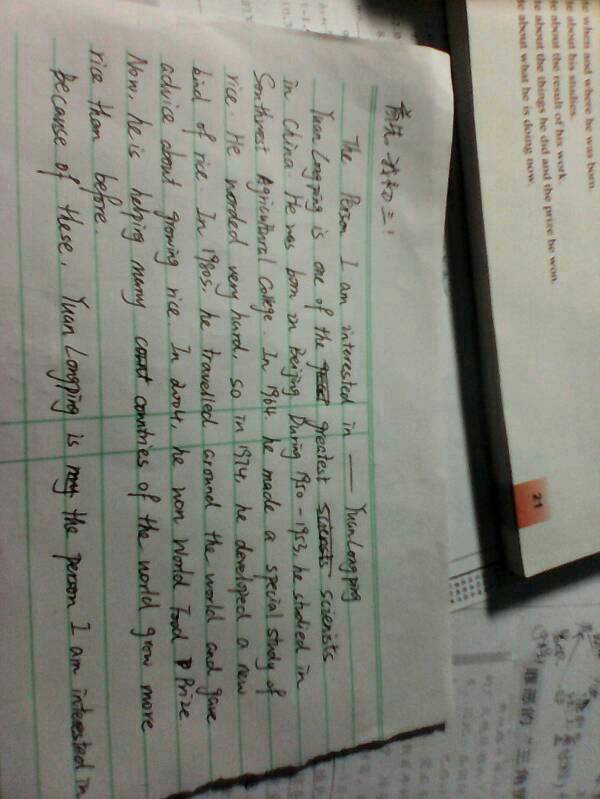 The Person I am interested in —— Yuan Longping
Yuan Longping is one of the greatest scientists
in China. He was born in Beijing. During 1950-1953, he studied in
Southwest Agricultural College. In 1964, he made a special study of
rice. He worded very hard, so in 1974, he developed a new
kind of rice. In 1980s, he travelled around the world and gave
advice about growing rice. In 2004, he won World Food Prize
Now, he is helping many countries of the world grow more
rice than before.
Because of these, Yuan Longping is the person I am interested in
te when and where he was born.
te about his studies.
te about the result of his work.
te about the things he did and the prize he won.
te about what he is doing now.
21